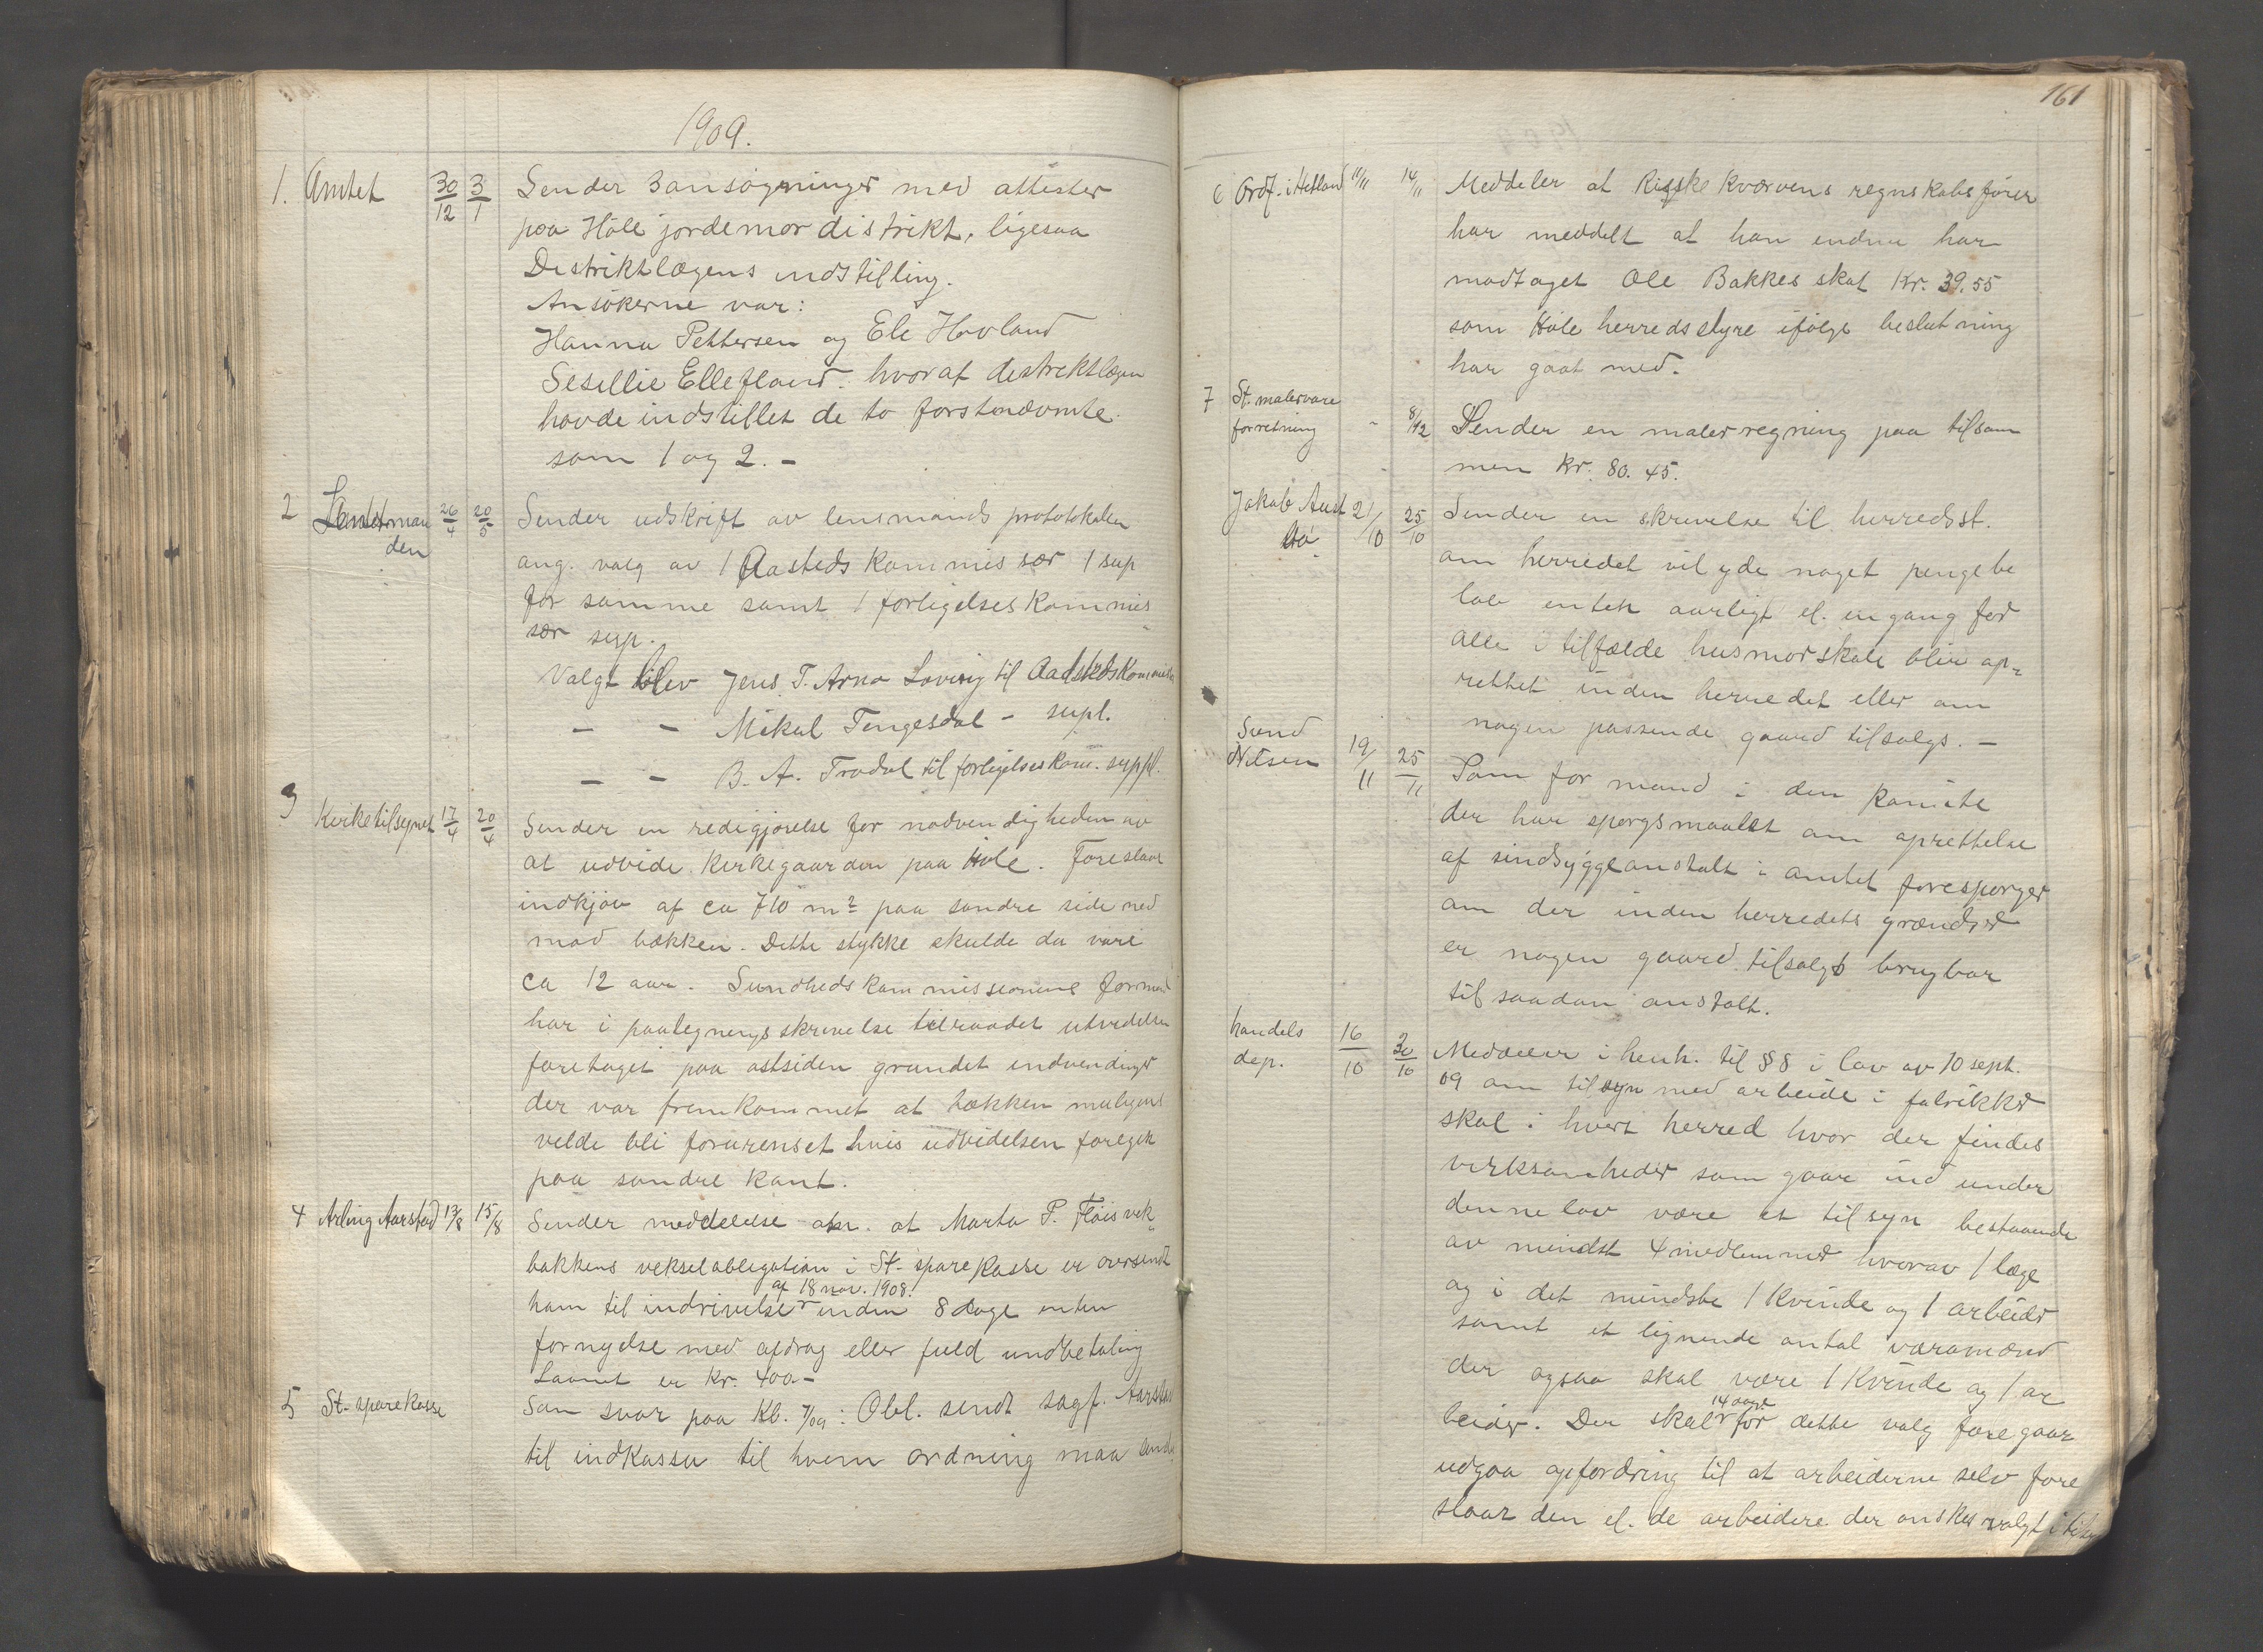 1909.
1. Amtet 30/12 3/1 Sender 3 ansøgninger med attester
paa Höle jordemordistrikt, ligesaa
Distriktlægens indstilling.
Ansökerne var:
Hanna Pettersen og Ele Hovland
Sesillie Ellefland. hvoraf distriktlægen
havde indstillet de to förstnævnte
som 1 og 2. -
2 Lensman 26/4 20/5 Sender udskrift av lensmands protokollen
den
ang. valg av 1 Aasteds kommissær 1 sup
for samme samt 1 forligelseskommis
sær sup.
Valgt blev Jens. T. Arno Loving til Aastedskommissær
- - Mikal Tengesdal - supl.
- - B. A. Trodal til forligelseskom. suppl.
3 Kirketilsynet 17/4 20/4 Sender en redigjørelse for nødvendigheden av
at udvide kirkegaarden paa Höle. Foreslaar
indkjøv af ca 710 m² paa søndre side ned
mod bækken. Dette stykke skulde da være
ca 12 aar. Sundhedskommissionens formand
har i paategningsskrivelse tilraadet utvidelsen
foretaget paa østsiden grundet indvendinger
der var fremkommet at bækken muligens
vilde bli forurenset hvis udvidelsen foregik
paa søndre kant.
4 Arling Aarstad 13/8 15/8 Sender meddelelse om at Marta P. Fløisvik-
bakkens vekselobligation i St- sparekasse er oversendt
af 18 nov. 1908.
ham til indrivelse inden 8 dage enten
fornyelse med afdrag eller fuld indbetaling
Laanet er Kr. 400-
5 St- sparekasse Som svar paa Kb. 7/09: Obl. sendt sagf. Aarstad
til indkasser til hvem ordning maa
161
6 Ordf. i Hetland 11/11 14/11 Meddeler at Risske kværvens regnskabsfører
har meddelt at han endnu har
modtaget Ole Bakkes skat Kr. 39.55
som Höle herredsstyre ifølge beslutning
har gaat med.
7 St. malervare
forretning - 8/12 Sender en malerregning paa tilsam
men Kr. 80.45.
Jakob Aust 21/10 25/10 Sender en skrivelse til herredsst.
bø
om herredet vil yde noget pengebe
løb enten aarligt el. engang for
alle i tilfælde husmorskole blir op-
rettet inden herredet eller om
nogen passende gaard tilsalgs. -
Sund
Nilsen 19/11 25/11 Som formand i den komite
der har spørgsmaalet om oprettelse
af sindsygeanstalt i amtet forespørger
om der inden herredets grændser
er nogen gaard tilsalgs brugbar
til saadan anstalt.
handels
dep. 16/10 30/10 Meddeler i henh. til § 8 i lov av 10 sept.
09 om tilsyn med arbeide i fabrikker
skal i hvert herred hvor der findes
virksomheder som gaar ind under
denne lov være et tilsyn bestaaende
av mindst 4 medlemmer hvorav 1 læge
og i det mindste 1 kvinde og 1 arbeider
samt et lignende antal varamænd
der ogsaa skal være 1 kvinde og 1 ar
14 dage
beider. Der skal før dette valg foregaar
udgaa opfordring til at arbeiderne selv fore
slaar den el. de arbeidere der ønskes valgt i